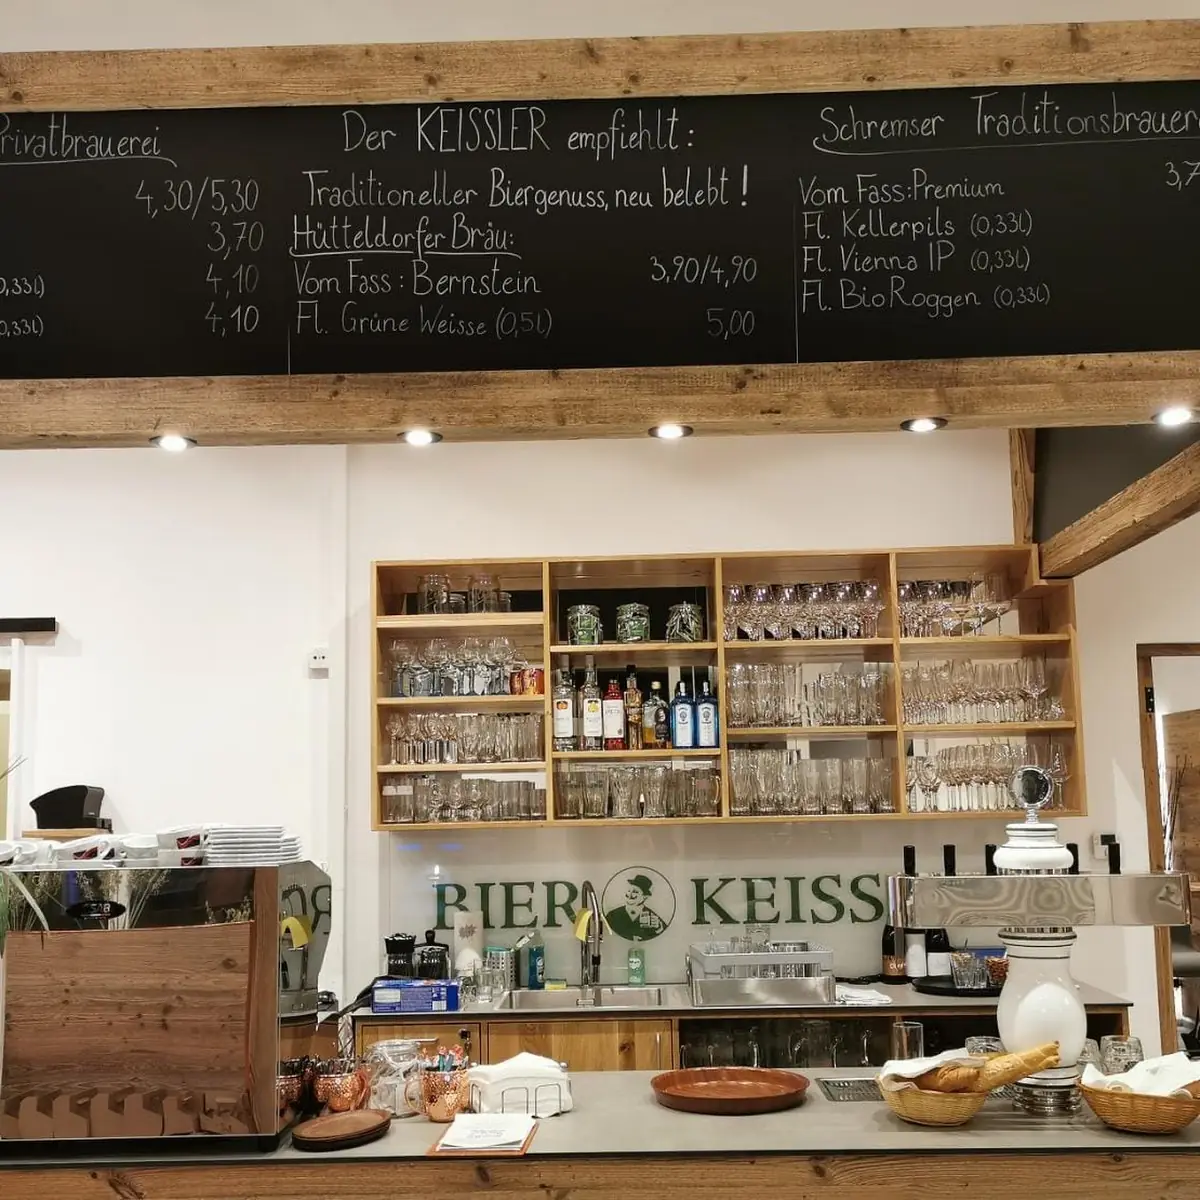 Privatbrauerei
4,30/5,30
3,70
0,33l) 4,10
0,33l) 4,10
Der KEISSLER empfiehlt:
Traditioneller Biergenuss, neu belebt!
Hütteldorfer Bräu:
Vom Fass: Bernstein 3,90/4,90
Fl. Grüne Weisse (0,5l) 5,00
Schremser Traditionsbrauere
Vom Fass: Premium 3,7
Fl. Kellerpils (0,33l)
Fl. Vienna IP (0,33l)
Fl. BioRoggen (0,33l)
BIER KEISS